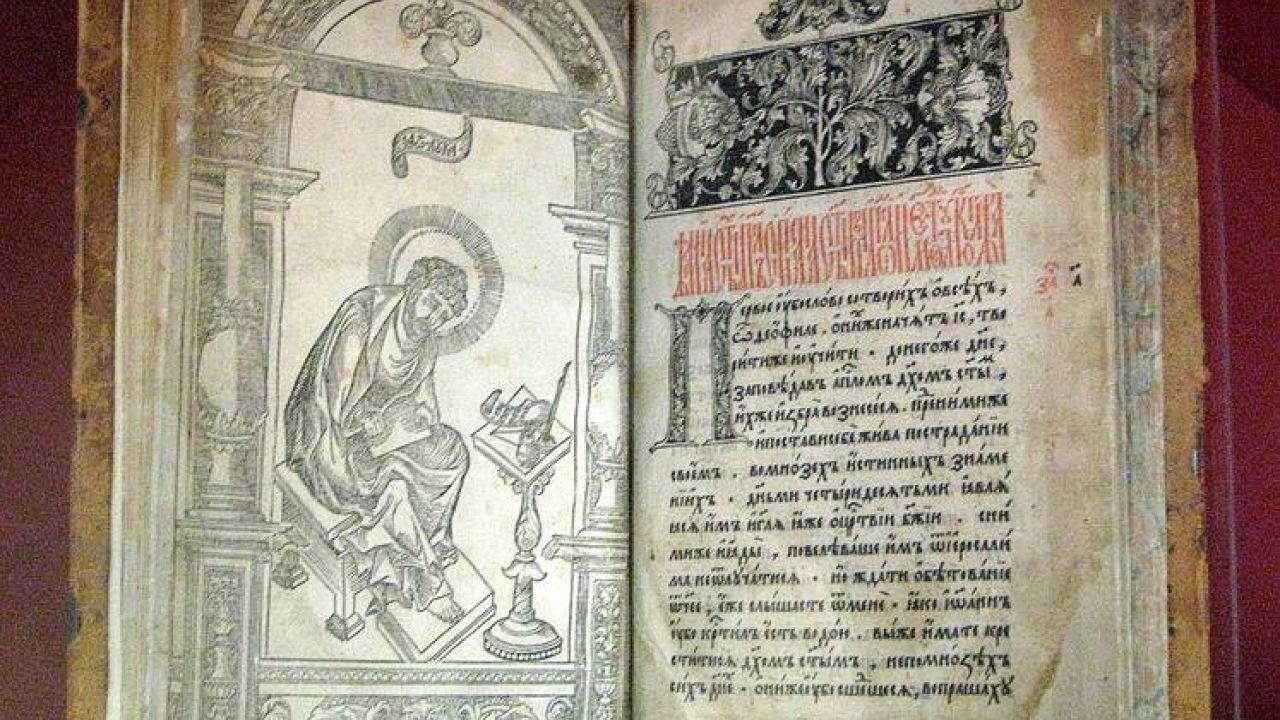 Первое ѹ҆бо слово сотворихъ ѡ҆всѣхъ,
ѽ деѻ҆филе. ѡ҆ниже начатъ і҆с, тво
рити же и҆ ѹ҆чити. донегоже дн҃е,
заповѣдавъ а҆пⷭ҇ломъ дх҃омъ ст҃ымъ,
и҆хже и҆збра вознесеся. пред ними же
и҆ постави себе жива по страданїи
своемъ. во мнозехъ и҆стинныхъ зна́ме
нїи҆хъ. дньми четыридесятьми ꙗ҆вля
ꙗся и҆мъ и҆ гл҃я ꙗ҆же ѡ҆ цр҃твїи бж҃їи. с ни
миже и҆ ꙗ҆ды, повелѣваше и҆мъ ѿ і҆еросали
ма не ѿлучатися. но ждати ѡ҆бѣтованїе
ѿч҃ее, є҆же слышасте ѿ мене. ꙗ҆ко і҆ѡ҆аннъ
ѹ҆бо крⷭ҇тилъ є҆сть водою. вы же и҆мате кре
ститися дх҃омъ ст҃ымъ, не по мнозѣхъ
сихъ дн҃е. ѡ҆ни же ѹ҆бо сшедшеся, вопрашаху